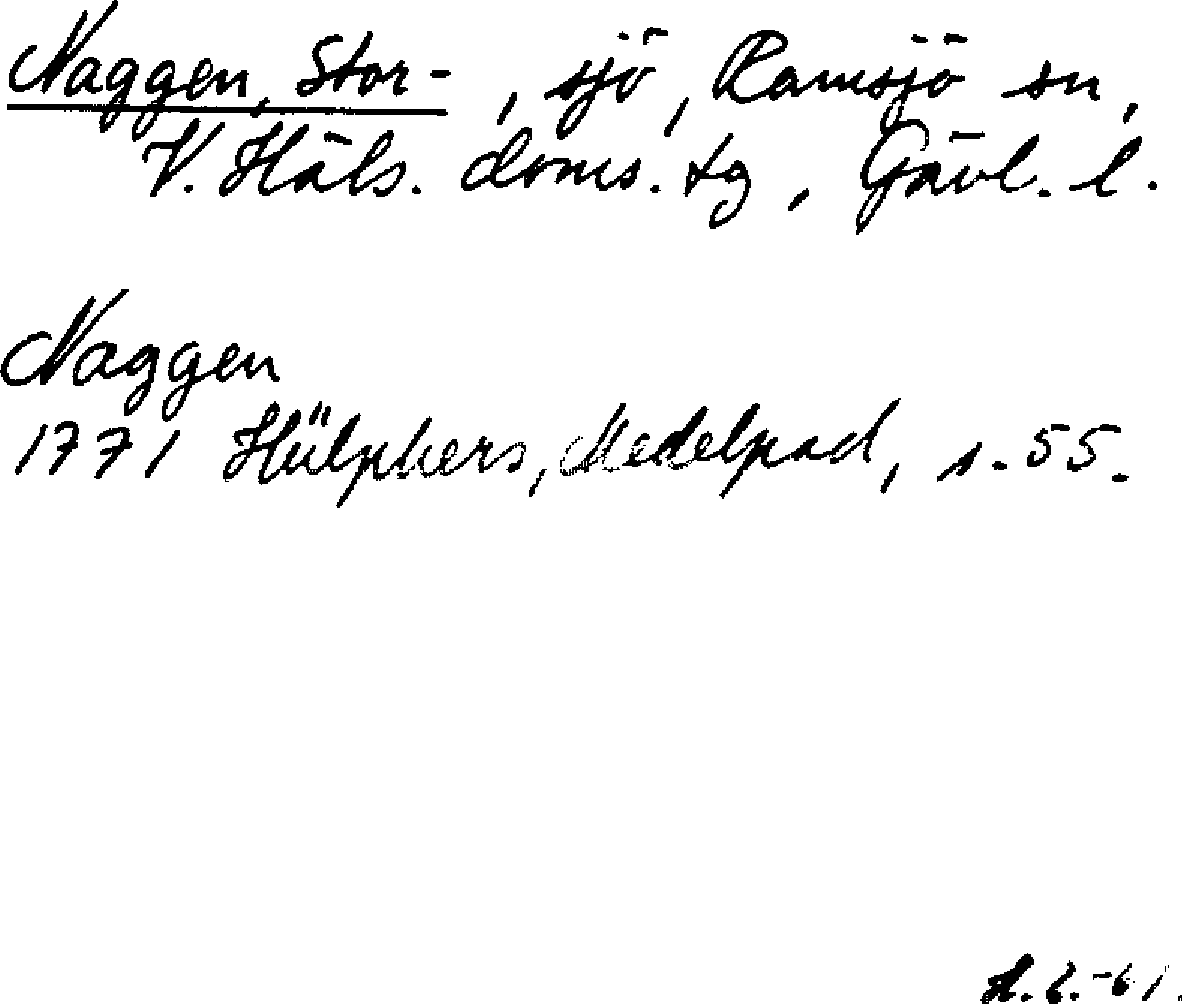 Naggen, Stor-, sjö, Ramsjö sn,
V. Häls. doms. tg, Gävl. l.
Naggen
1771 Hülphers, Medelpad, s. 55.